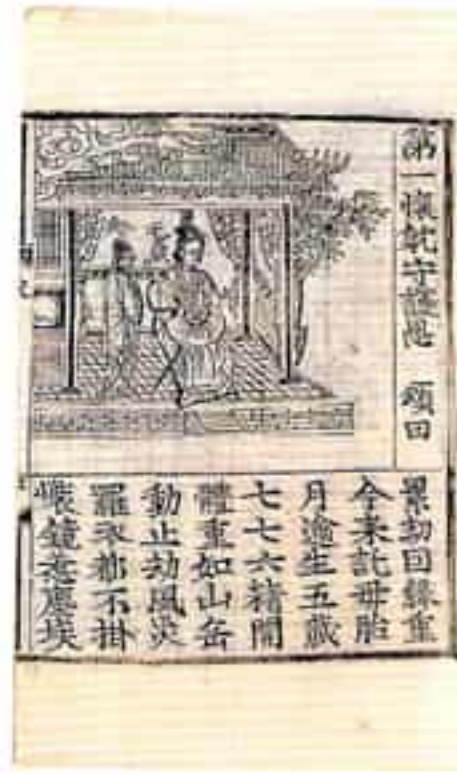 第一懷躭守護恩 頌曰
累劫因緣重
今来託母胎
月逾生五藏
七七六精開
體重如山岳
動止劫風災
羅衣都不掛
㽵鏡惹塵埃